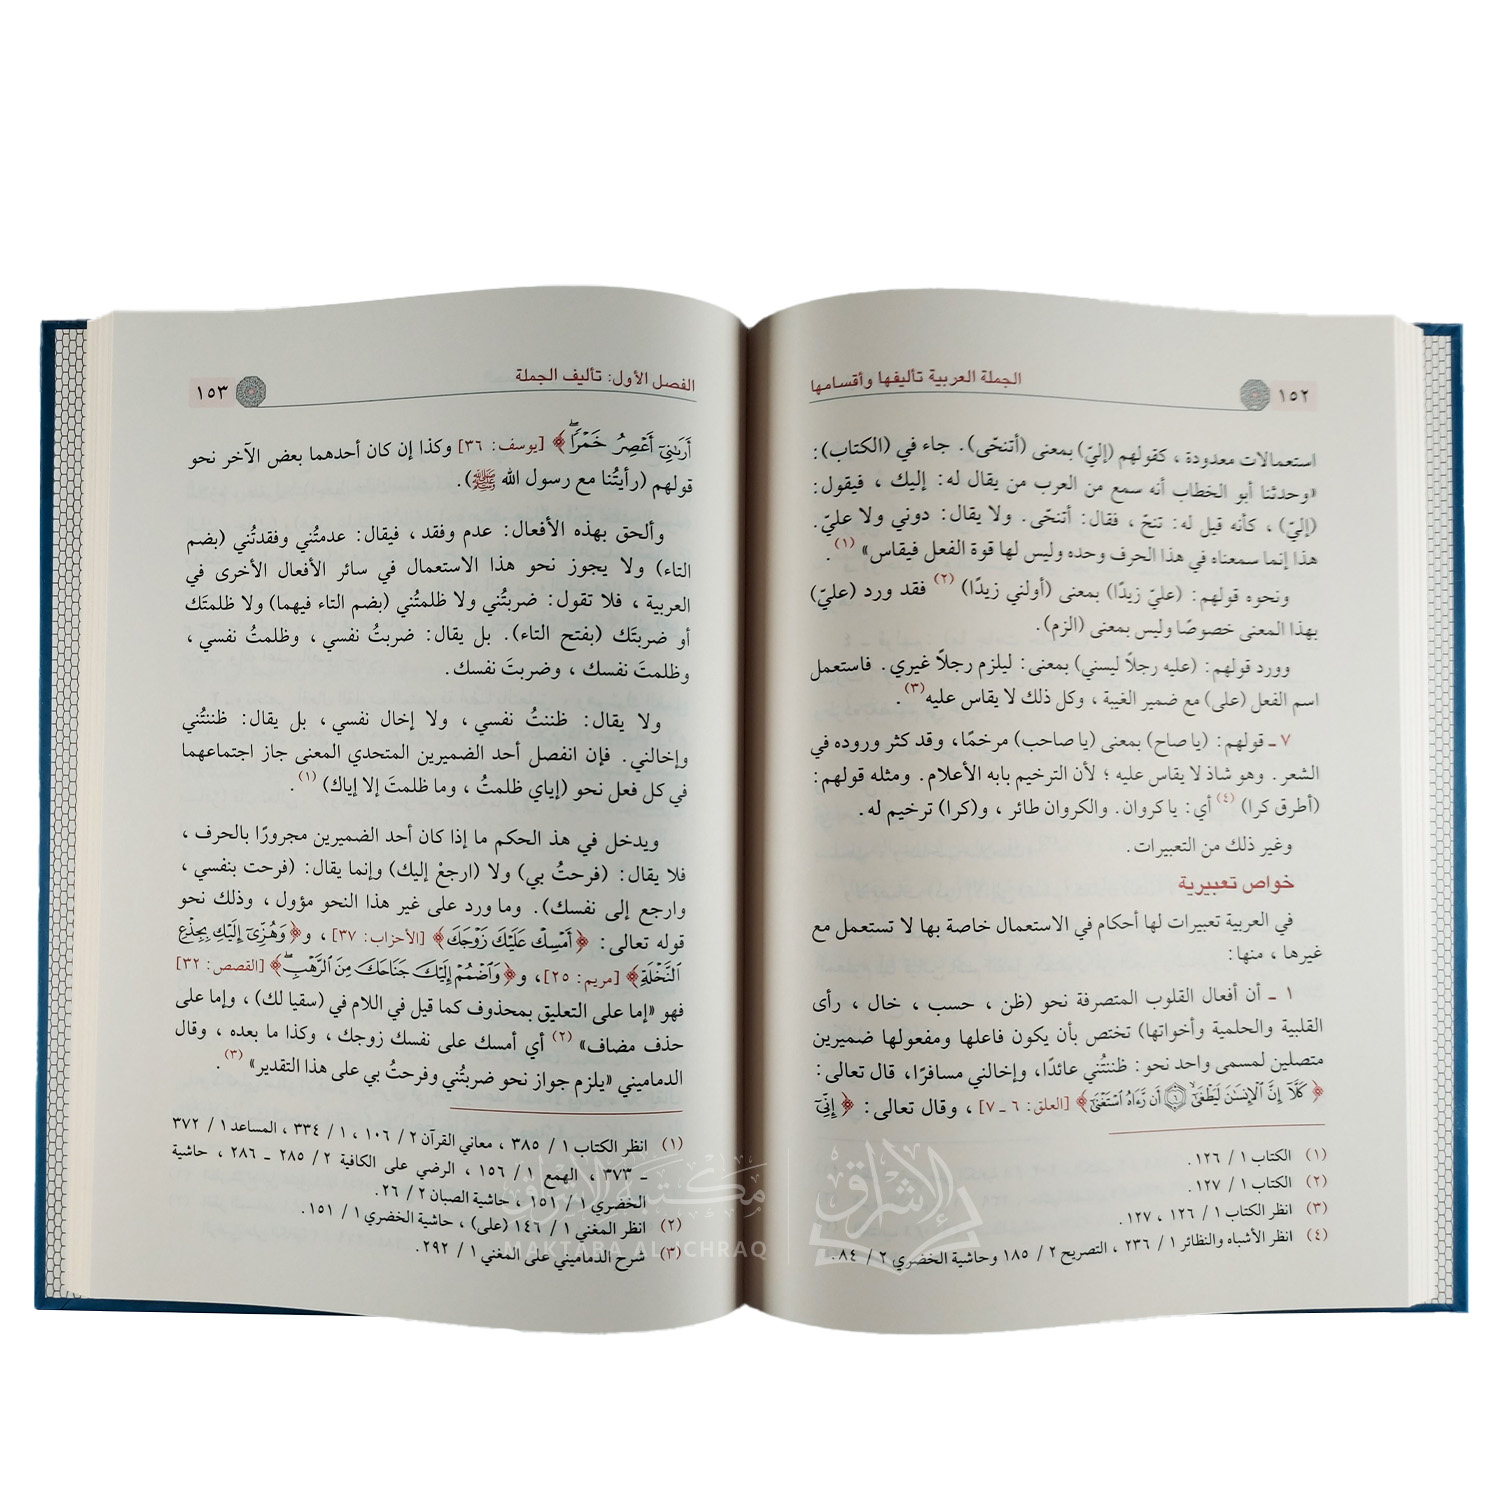 ١٥٢
الجملة العربية تأليفها وأقسامها
استعمالات معدودة ، كقولهم (إليّ) بمعنى (أتنحّى). جاء في (الكتاب):
«وحدثنا أبو الخطاب أنه سمع من العرب من يقال له: إليك ، فيقول:
(إليّ) ، كأنه قيل له: تنحّ ، فقال: أتنحّى. ولا يقال: دوني ولا عليّ.
هذا إنما سمعناه في هذا الحرف وحده وليس لها قوة الفعل فيقاس» (١).
ونحوه قولهم: (عليّ زيدًا) بمعنى (أولني زيدًا) (٢) فقد ورد (عليّ)
بهذا المعنى خصوصًا وليس بمعنى (الزم).
وورد قولهم: (عليه رجلاً ليسني) بمعنى: ليلزم رجلاً غيري. فاستعمل
اسم الفعل (على) مع ضمير الغيبة ، وكل ذلك لا يقاس عليه(٣).
٧ ـ قولهم: (يا صاح) بمعنى (يا صاحب) مرخمًا، وقد كثر وروده في
الشعر. وهو شاذ لا يقاس عليه ؛ لأن الترخيم بابه الأعلام. ومثله قولهم:
(أطرق كرا) (٤) أي: يا كروان. والكروان طائر ، و(كرا) ترخيم له.
وغير ذلك من التعبيرات.
خواص تعبيرية
في العربية تعبيرات لها أحكام في الاستعمال خاصة بها لا تستعمل مع
غيرها ، منها:
١ ـ أن أفعال القلوب المتصرفة نحو (ظن ، حسب ، خال ، رأى
القلبية والحلمية وأخواتها) تختص بأن يكون فاعلها ومفعولها ضميرين
متصلين لمسمى واحد نحو: ظننتُني عائدًا، وإخالني مسافرًا، قال تعالى:
﴿كَلَّآ إِنَّ ٱلْإِنسَٰنَ لَيَطْغَىٰٓ ۝٦ أَن رَّءَاهُ ٱسْتَغْنَىٰٓ﴾ [العلق: ٦ ـ ٧] ، وقال تعالى: ﴿إِنِّىٓ
(١) الكتاب ١ / ١٢٦.
(٢) الكتاب ١ / ١٢٧.
(٣) انظر الكتاب ١ / ١٢٦ ، ١٢٧.
(٤) انظر الأشباه والنظائر ١ / ٢٣٦ ، التصريح ٢ / ١٨٥ وحاشية الخضري ٢ / ٨٤.
الفصل الأول: تأليف الجملة
١٥٣
أَرَىٰنِىٓ أَعْصِرُ خَمْرًا﴾ [يوسف: ٣٦] وكذا إن كان أحدهما بعض الآخر نحو
قولهم (رأيتُنا مع رسول الله ﷺ).
وألحق بهذه الأفعال: عدم وفقد ، فيقال: عدمتُني وفقدتُني (بضم
التاء) ولا يجوز نحو هذا الاستعمال في سائر الأفعال الأخرى في
العربية ، فلا تقول: ضربتُني ولا ظلمتُني (بضم التاء فيهما) ولا ظلمتَك
أو ضربتَك (بفتح التاء). بل يقال: ضربتُ نفسي ، وظلمتُ نفسي ،
وظلمتَ نفسك ، وضربتَ نفسك.
ولا يقال: ظننتُ نفسي ، ولا إخال نفسي ، بل يقال: ظننتُني
وإخالني. فإن انفصل أحد الضميرين المتحدي المعنى جاز اجتماعهما
في كل فعل نحو (إياي ظلمتُ ، وما ظلمتَ إلا إياك) (١).
ويدخل في هذ الحكم ما إذا كان أحد الضميرين مجرورًا بالحرف ،
فلا يقال: (فرحتُ بي) ولا (ارجعْ إليك) وإنما يقال: (فرحت بنفسي ،
وارجع إلى نفسك). وما ورد على غير هذا النحو مؤول ، وذلك نحو
قوله تعالى: ﴿أَمْسِكْ عَلَيْكَ زَوْجَكَ﴾ [الأحزاب: ٣٧] ، و﴿وَهُزِّىٓ إِلَيْكِ بِجِذْعِ
ٱلنَّخْلَةِ﴾ [مريم: ٢٥]، و﴿وَٱضْمُمْ إِلَيْكَ جَنَاحَكَ مِنَ ٱلرَّهْبِ﴾ [القصص: ٣٢]
فهو «إما على التعليق بمحذوف كما قيل في اللام في (سقيا لك) ، وإما على
حذف مضاف» (٢) أي أمسك على نفسك زوجك ، وكذا ما بعده ، وقال
الدماميني «يلزم جواز نحو ضربتُني وفرحتُ بي على هذا التقدير» (٣).
(١) انظر الكتاب ١ / ٣٨٥ ، معاني القرآن ٢ / ١٠٦ ، ١ / ٣٣٤ ، المساعد ١ / ٣٧٢
ـ ٣٧٣ ، الهمع ١ / ١٥٦ ، الرضي على الكافية ٢ / ٢٨٥ ـ ٢٨٦ ، حاشية
الخضري ١ / ١٥١ ، حاشية الصبان ٢ / ٢٦.
(٢) انظر المغني ١ / ١٤٦ (على) ، حاشية الخضري ١ / ١٥١.
(٣) شرح الدماميني على المغني ١ / ٢٩٢.
مكتبة الإشراق
MAKTABA AL ICHRAQ
الإشراق